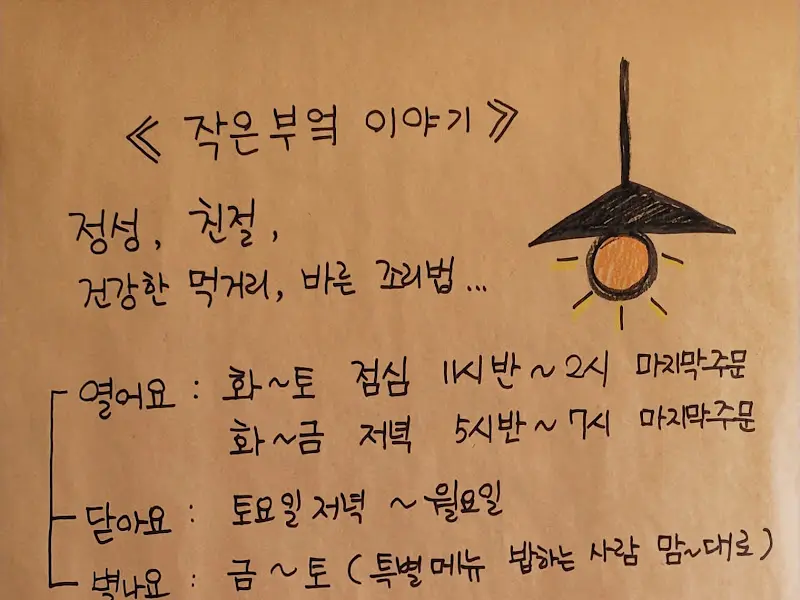 ≪ 작은부엌 이야기 ≫
정성, 친절,
건강한 먹거리, 바른 조리법...
열어요 : 화~토 점심 11시반~2시 마지막주문
화~금 저녁 5시반~7시 마지막주문
닫아요 : 토요일저녁 ~월요일
별나요 : 금~토 (특별메뉴 밥하는 사람 맘~대로)